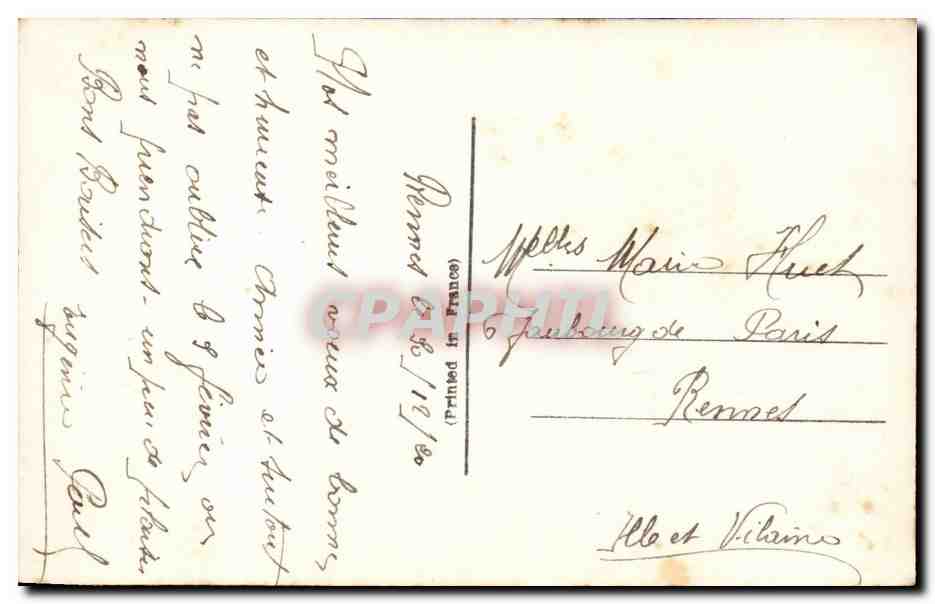 Rennes le 30/12/20
Nos meilleurs voeux de bonne
et heureuse Année et surtout
ne pas oublier le 9 février où
nous prendrons un peu de
Bons Baisers
Eugénie Paul
(Printed in France)
CPAPHIL
Melles Marie Huet
6 Faubourg de Paris
Rennes
Ille et Vilaine